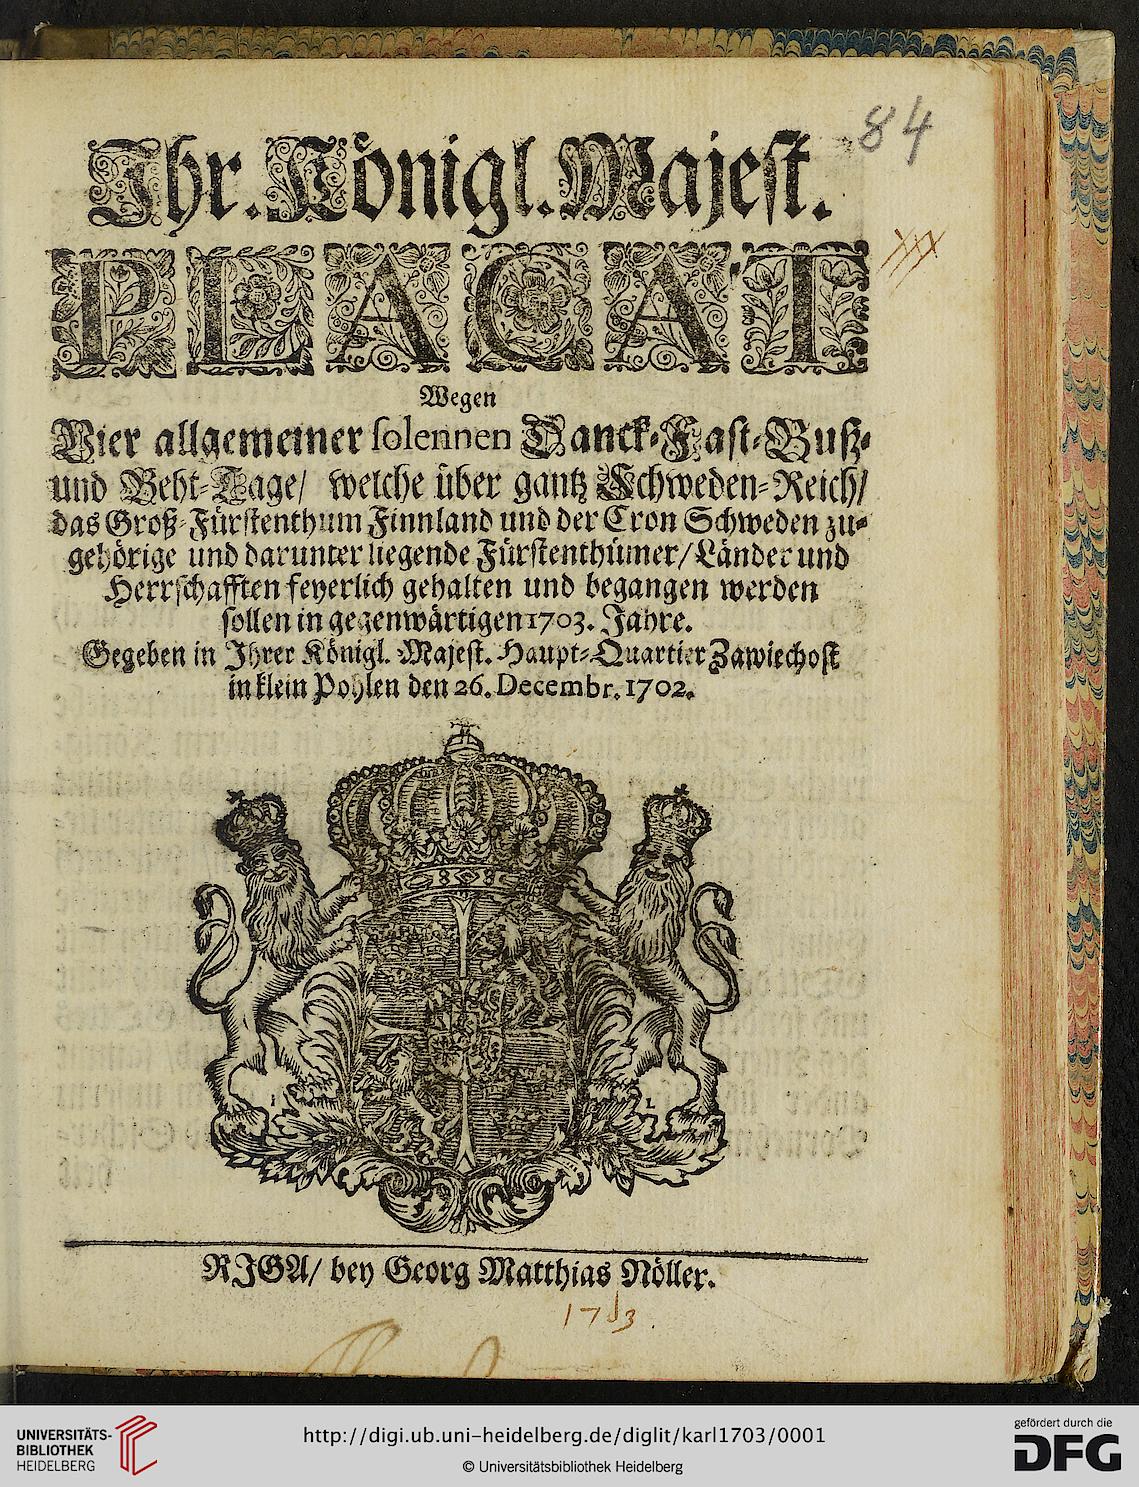 84
Ihr. Königl. Majest.
PLACAT
Wegen
Vier allgemeiner solennen Danck-Fast-Buß-
und Beht-Tage/ welche über gantz Schweden-Reich/
das Groß-Fürstenthum Finnland und der Cron Schweden zu-
gehörige und darunter liegende Fürstenthümer/ Länder und
Herrschafften feyerlich gehalten und begangen werden
sollen in gegenwärtigen 1703. Jahre.
Gegeben in Ihrer Königl. Majest. Haupt-Quartier Zawiechost
in klein Pohlen den 26. Decembr. 1702.
RIGA/ bey Georg Matthias Nöller.
1703.
UNIVERSITÄTS-
BIBLIOTHEK
HEIDELBERG
http://digi.ub.uni-heidelberg.de/diglit/karl1703/0001
© Universitätsbibliothek Heidelberg
gefördert durch die
DFG